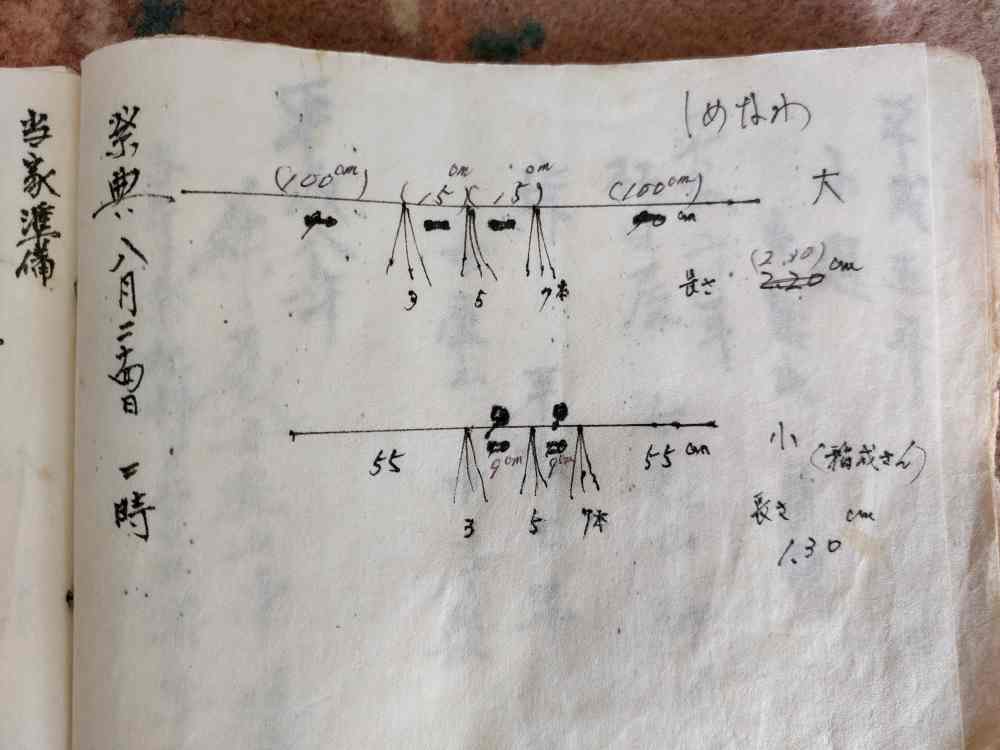 しめなわ
大
(100cm) (15cm) (15cm) (100cm)
cm
3 5 7本
長さ (2.30)cm
2.20
小 (稲成さん)
55 9cm 9cm 55cm
3 5 7本
長さ cm
1.30
祭典 八月二十四日 二時
当家準備